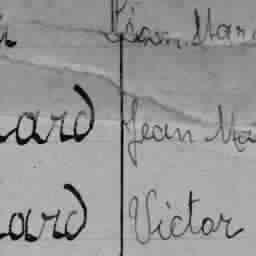 Jean Mar
ard Jean Ma
ard Victor